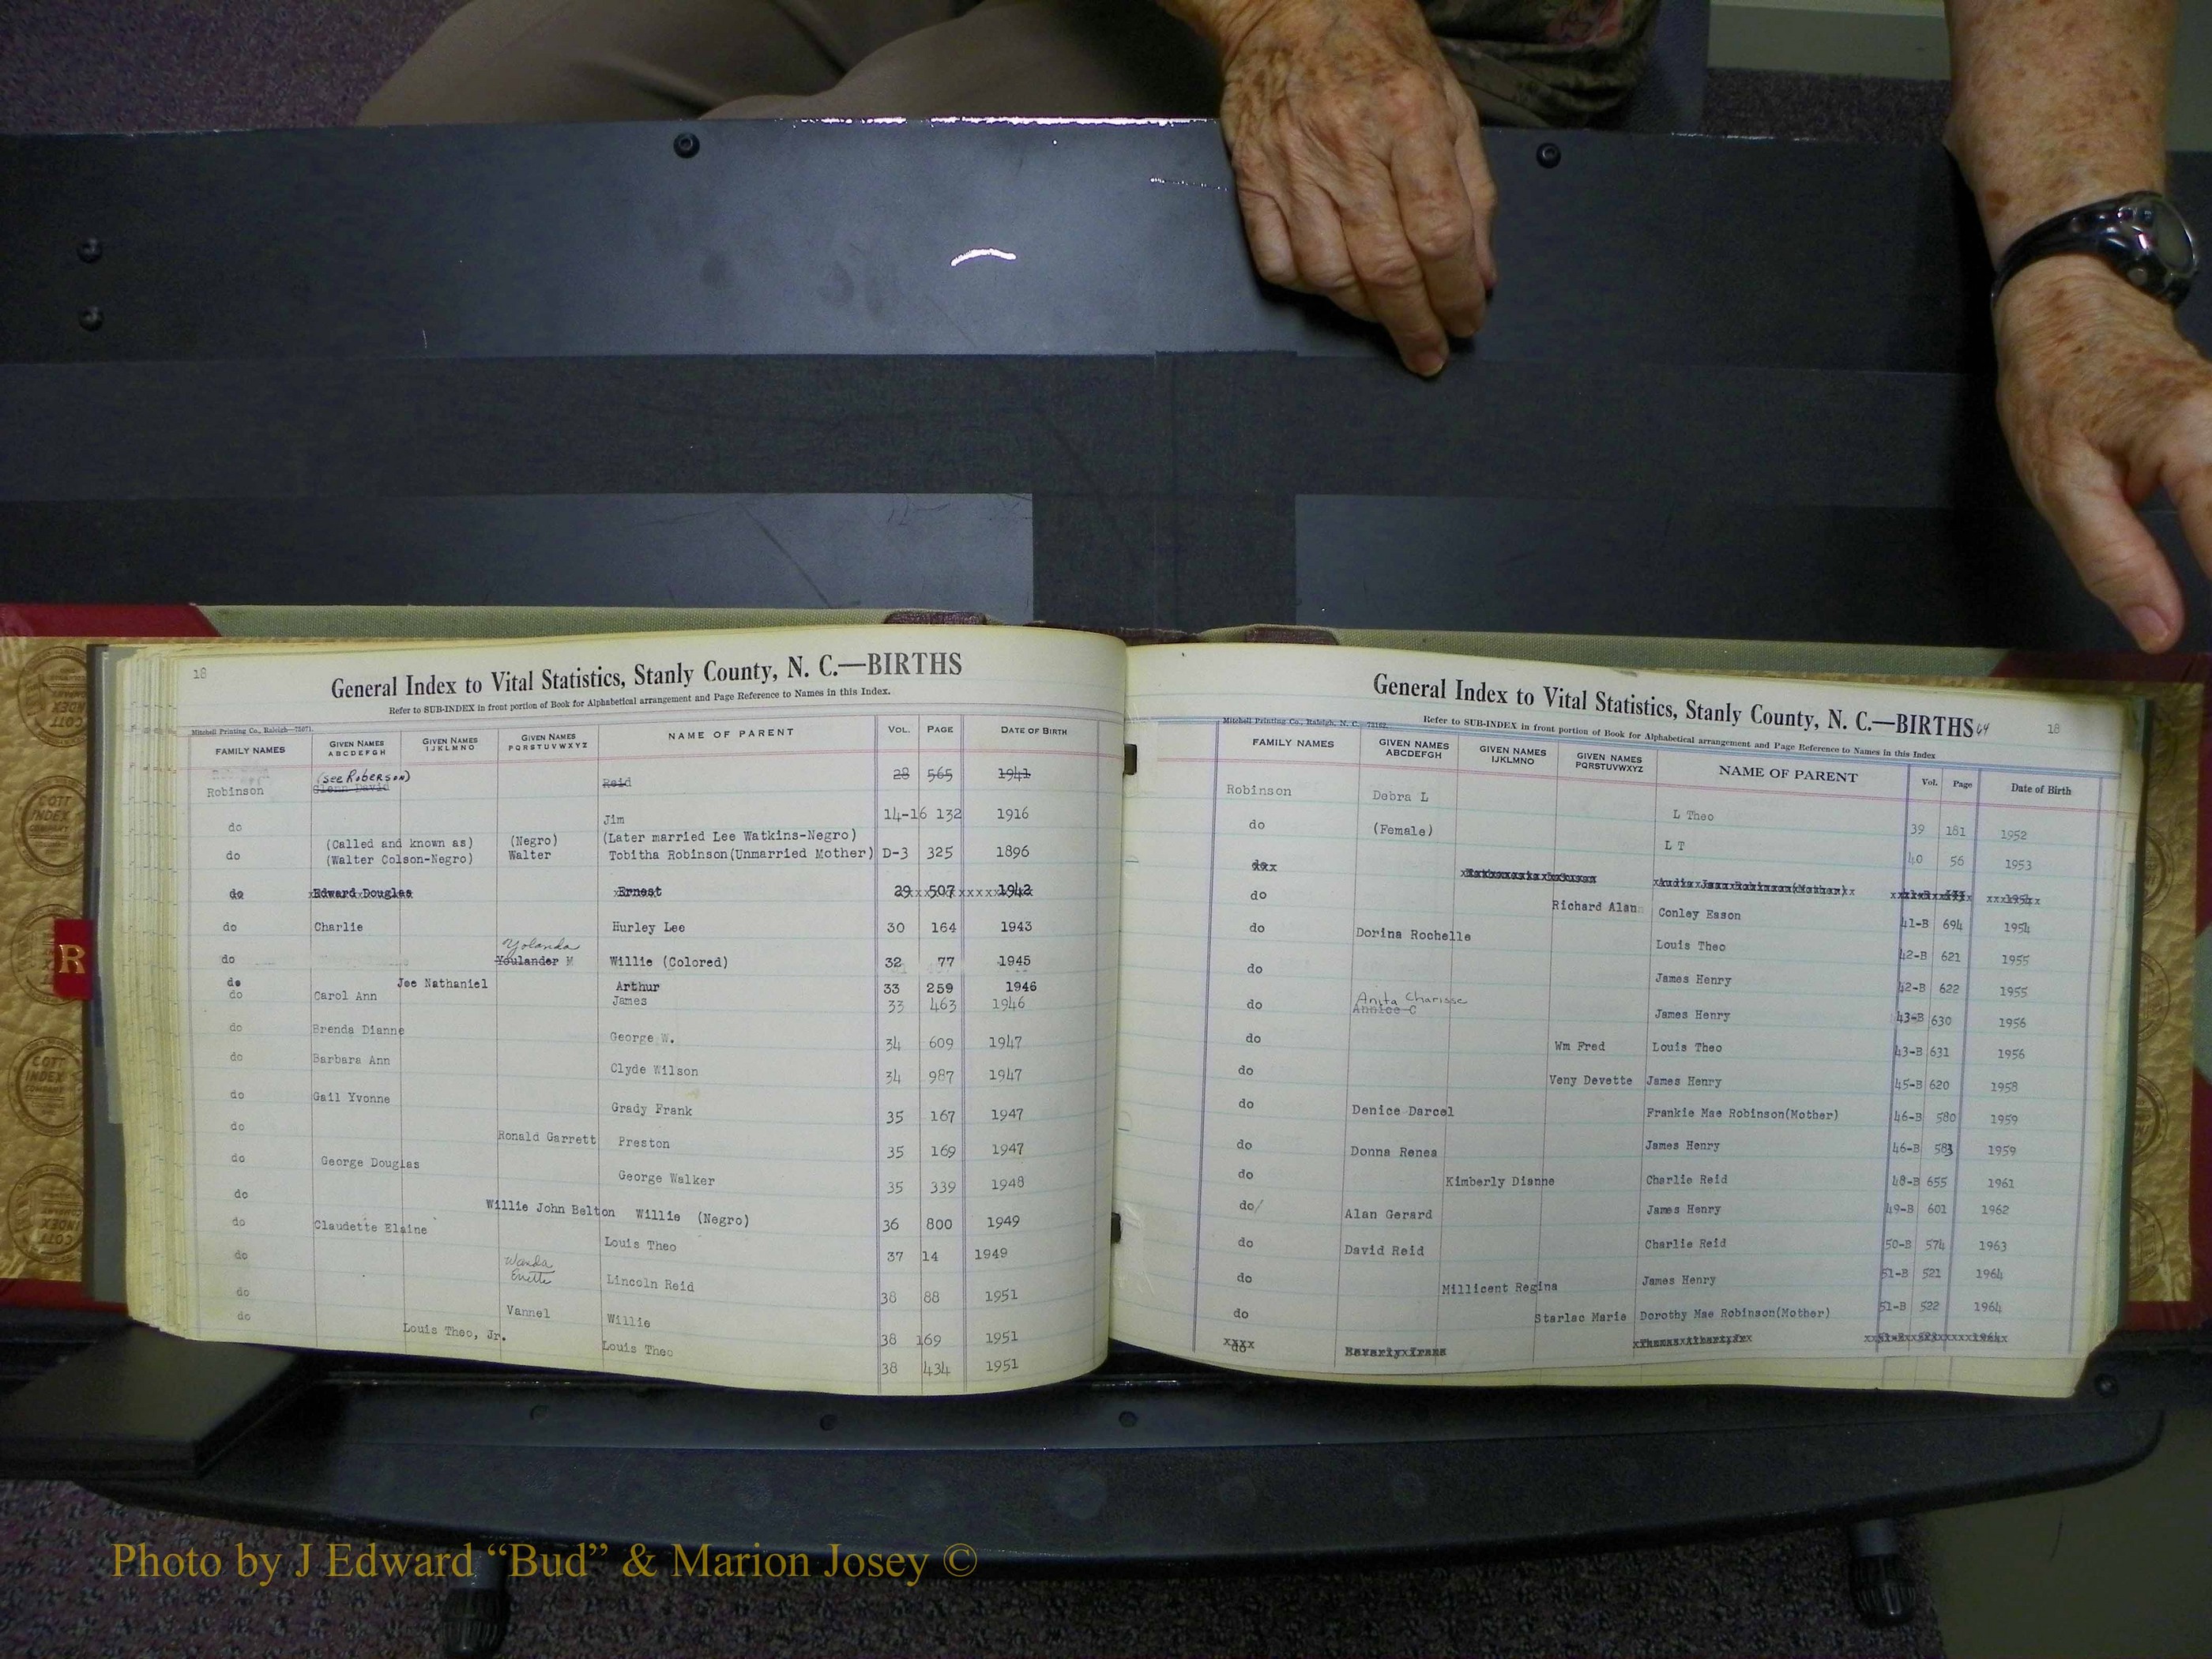 18
General Index to Vital Statistics, Stanly County, N. C.—BIRTHS
Refer to SUB-INDEX in front portion of Book for Alphabetical arrangement and Page Reference to Names in this Index.
Mitchell Printing Co., Raleigh—75071.
FAMILY NAMES GIVEN NAMES ABCDEFGH GIVEN NAMES IJKLMNO GIVEN NAMES PQRSTUVWXYZ NAME OF PARENT VOL. PAGE DATE OF BIRTH
(see Roberson)
Robinson Glenn David Reid 28 565 1941
do Jim 14-16 132 1916
(Called and known as) (Negro) (Later married Lee Watkins-Negro)
do (Walter Colson-Negro) Walter Tobitha Robinson(Unmarried Mother) D-3 325 1896
do Edward Douglas Ernest 29 507 1942
do Charlie Hurley Lee 30 164 1943
Yolanda
do Youlander M Willie (Colored) 32 77 1945
do Joe Nathaniel Arthur 33 259 1946
do Carol Ann James 33 463 1946
do Brenda Dianne George W. 34 609 1947
do Barbara Ann Clyde Wilson 34 987 1947
do Gail Yvonne Grady Frank 35 167 1947
do Ronald Garrett Preston 35 169 1947
do George Douglas George Walker 35 339 1948
do Willie John Belton Willie (Negro) 36 800 1949
do Claudette Elaine Louis Theo 37 14 1949
do Wanda
Lincoln Reid 38 88 1951
do Vannel Willie 38 169 1951
do Louis Theo, Jr. Louis Theo 38 434 1951
General Index to Vital Statistics, Stanly County, N. C.—BIRTHS 64 18
Refer to SUB-INDEX in front portion of Book for Alphabetical arrangement and Page Reference to Names in this Index
Mitchell Printing Co., Raleigh, N. C.
FAMILY NAMES GIVEN NAMES ABCDEFGH GIVEN NAMES IJKLMNO GIVEN NAMES PQRSTUVWXYZ NAME OF PARENT Vol. Page Date of Birth
Robinson Debra L L Theo 39 181 1952
do (Female) L T 40 56 1953
do 1954
do Richard Alan Conley Eason 41-B 694 1954
do Dorina Rochelle Louis Theo 42-B 621 1955
do James Henry 42-B 622 1955
Anita Charisse
do Annice C James Henry 43-B 630 1956
do Wm Fred Louis Theo 43-B 631 1956
do Veny Devette James Henry 45-B 620 1958
do Denice Darcel Frankie Mae Robinson(Mother) 46-B 580 1959
do Donna Renea James Henry 46-B 583 1959
do Kimberly Dianne Charlie Reid 48-B 655 1961
do/ Alan Gerard James Henry 49-B 601 1962
do David Reid Charlie Reid 50-B 574 1963
do Millicent Regina James Henry 51-B 521 1964
do Starlac Marie Dorothy Mae Robinson(Mother) 51-B 522 1964
do 1964
R
COTT
INDEX
COMPANY
Photo by J Edward “Bud” & Marion Josey ©